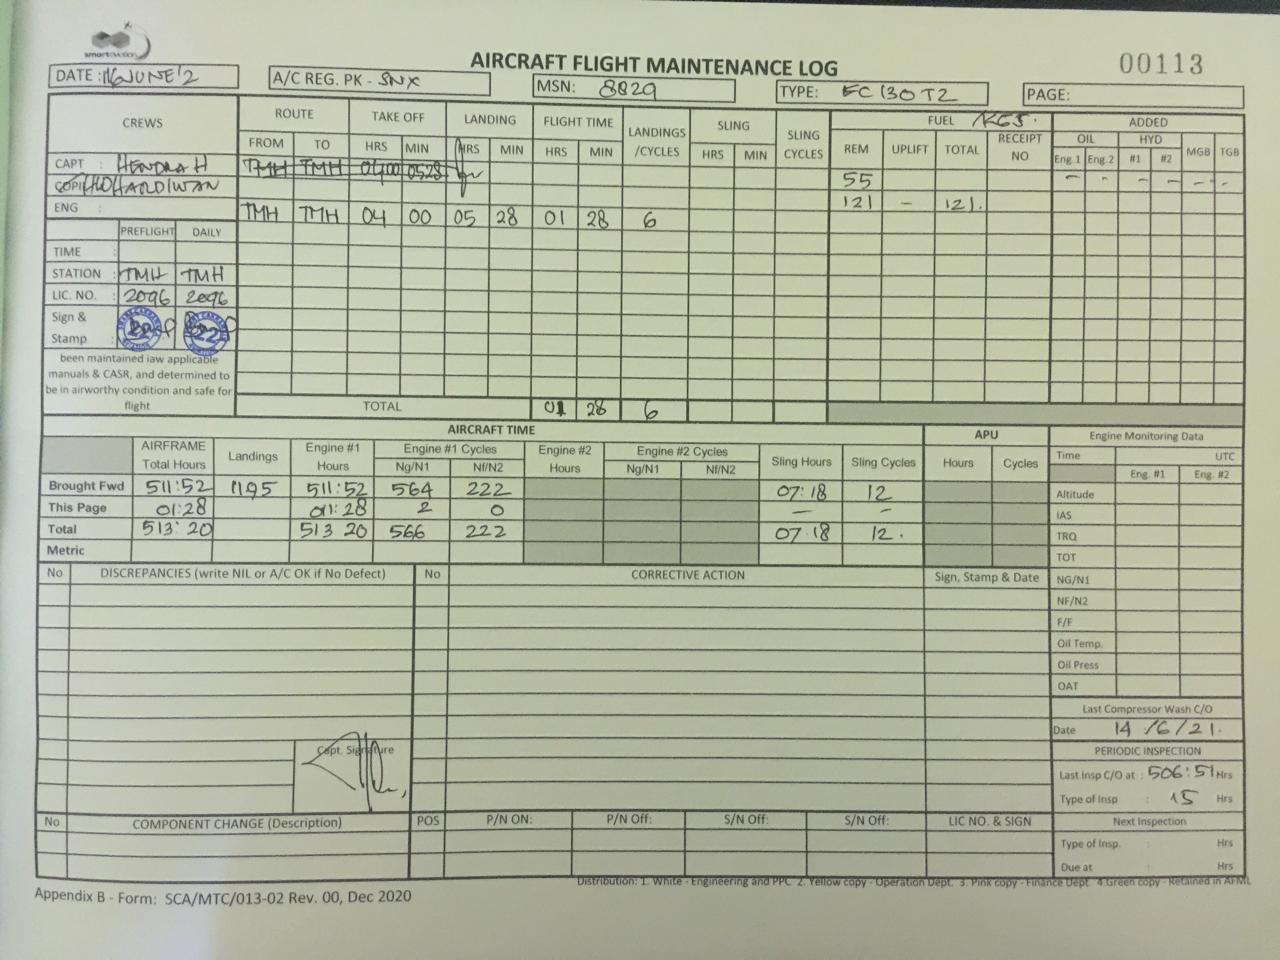 smartaviation
AIRCRAFT FLIGHT MAINTENANCE LOG
00113
DATE : 16 JUNE '2
A/C REG. PK - SNX
MSN: 8829
TYPE: EC 130 T2
PAGE:
CREWS ROUTE TAKE OFF LANDING FLIGHT TIME LANDINGS /CYCLES SLING SLING CYCLES FUEL KGS. ADDED
FROM TO HRS MIN HRS MIN HRS MIN HRS MIN REM UPLIFT TOTAL RECEIPT NO OIL HYD MGB TGB
Eng.1 Eng.2 #1 #2
CAPT : HENDRA H TMH TMH 0400 0528
COPI HARDIWAN 55 - - - - - -
ENG : TMH TMH 04 00 05 28 01 28 6 121 - 121.
PREFLIGHT DAILY
TIME :
STATION : TMH TMH
LIC. NO. : 2096 2096
Sign &
Stamp : 22 22
been maintained iaw applicable
manuals & CASR, and determined to
be in airworthy condition and safe for
flight
TOTAL 01 28 6
AIRCRAFT TIME APU Engine Monitoring Data
AIRFRAME Total Hours Landings Engine #1 Hours Engine #1 Cycles Engine #2 Hours Engine #2 Cycles Sling Hours Sling Cycles Hours Cycles Time UTC
Ng/N1 Nf/N2 Ng/N1 Nf/N2 Eng. #1 Eng. #2
Brought Fwd 511:52 1195 511:52 564 222 07:18 12
This Page 01:28 01:28 2 0 - -
Total 513:20 513 20 566 222 07 18 12.
Metric
Altitude
IAS
TRQ
TOT
NG/N1
NF/N2
F/F
Oil Temp.
Oil Press
OAT
No DISCREPANCIES (write NIL or A/C OK if No Defect) No CORRECTIVE ACTION Sign, Stamp & Date
Capt. Signature
Last Compressor Wash C/O
Date 14 /6/21.
PERIODIC INSPECTION
Last Insp C/O at : 506:51 Hrs
Type of Insp : 15 Hrs
Next Inspection
Type of Insp. : Hrs
Due at : Hrs
No COMPONENT CHANGE (Description) POS P/N ON: P/N Off: S/N Off: S/N Off: LIC NO. & SIGN
Distribution: 1. White - Engineering and PPC 2. Yellow copy - Operation Dept. 3. Pink copy - Finance Dept. 4.Green copy - Retained in AFML
Appendix B - Form: SCA/MTC/013-02 Rev. 00, Dec 2020